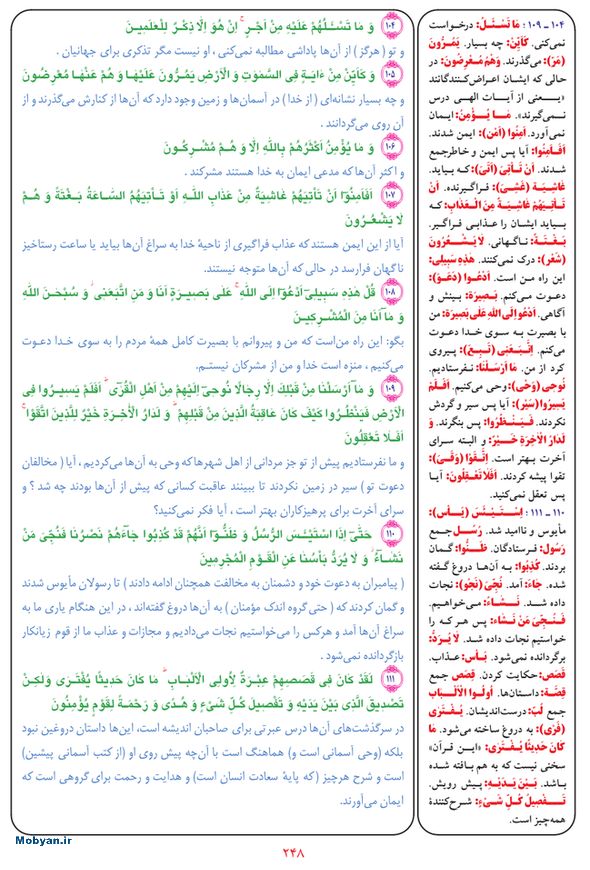 ۱۰۴ وَ مَا تَسْـَٔلُهُمْ عَلَيْهِ مِنْ أَجْرٍ ۚ إِنْ هُوَ إِلَّا ذِكْرٌ لِلْعٰلَمِينَ
و تو ( هرگز ) از آن‌ها پاداشی مطالبه نمی‌کنی ، او نیست مگر تذکری برای جهانیان .
۱۰۵ وَ كَأَيِّنْ مِنْ ءَايَةٍ فِى السَّمٰوٰتِ وَ الْأَرْضِ يَمُرُّونَ عَلَيْهَا وَ هُمْ عَنْهَا مُعْرِضُونَ
و چه بسیار نشانه‌ای ( از خدا ) در آسمان‌ها و زمین وجود دارد که آن‌ها از کنارش می‌گذرند و از
آن روی می‌گردانند .
۱۰۶ وَ مَا يُؤْمِنُ أَكْثَرُهُمْ بِاللّٰهِ إِلَّا وَ هُمْ مُشْرِكُونَ
و اکثر آن‌ها که مدعی ایمان به خدا هستند مشرکند .
۱۰۷ أَفَأَمِنُوٓا أَنْ تَأْتِيَهُمْ غَاشِيَةٌ مِنْ عَذَابِ اللّٰهِ أَوْ تَأْتِيَهُمُ السَّاعَةُ بَغْتَةً وَ هُمْ
لَا يَشْعُرُونَ
آیا از این ایمن هستند که عذاب فراگیری از ناحیهٔ خدا به سراغ آن‌ها بیاید یا ساعت رستاخیز
ناگهان فرارسد در حالی که آن‌ها متوجه نیستند.
۱۰۸ قُلْ هٰذِهِ سَبِيلِىٓ أَدْعُوٓا إِلَى اللّٰهِ ۚ عَلَىٰ بَصِيرَةٍ أَنَا وَ مَنِ اتَّبَعَنِى ۖ وَ سُبْحٰنَ اللّٰهِ
وَ مَآ أَنَا مِنَ الْمُشْرِكِينَ
بگو: این راه من‌است که من و پیروانم با بصیرت کامل همهٔ مردم را به سوی خدا دعوت
می‌کنیم ، منزه است خدا و من از مشرکان نیستـم.
۱۰۹ وَ مَآ أَرْسَلْنَا مِنْ قَبْلِكَ إِلَّا رِجَالًا نُوحِىٓ إِلَيْهِمْ مِنْ أَهْلِ الْقُرَىٰٓ ۗ أَفَلَمْ يَسِيرُوا فِى
الْأَرْضِ فَيَنْظُرُوا كَيْفَ كَانَ عَاقِبَةُ الَّذِينَ مِنْ قَبْلِهِمْ ۗ وَ لَدَارُ الْأٰخِرَةِ خَيْرٌ لِلَّذِينَ اتَّقَوْا ۗ
أَفَلَا تَعْقِلُونَ
و ما نفرستادیم پیش از تو جز مردانی از اهل شهرها که وحی به آن‌ها می‌کردیم ، آیا ( مخالفان
دعوت تو ) سیر در زمین نکردند تا ببینند عاقبت کسانی که پیش از آن‌ها بودند چه شد ؟ و
سرای آخرت برای پرهیزکاران بهتر است ، آیا فکر نمی‌کنید؟
۱۱۰ حَتَّىٰٓ إِذَا اسْتَيْـَٔسَ الرُّسُلُ وَ ظَنُّوٓا أَنَّهُمْ قَدْ كُذِبُوا جَآءَهُمْ نَصْرُنَا فَنُجِّىَ مَنْ
نَشَآءُ ۖ وَ لَا يُرَدُّ بَأْسُنَا عَنِ الْقَوْمِ الْمُجْرِمِينَ
( پیامبران به دعوت خود و دشمنان به مخالفت همچنان ادامه دادند ) تا رسولان مأیوس شدند
و گمان کردند که ( حتی گروه اندک مؤمنان ) به آن‌ها دروغ گفته‌اند ، در این هنگام یاری ما به
سراغ آن‌ها آمد و هرکس را می‌خواستیم نجات می‌دادیم و مجازات و عذاب ما از قوم زیانکار
بازگردانده نمی‌شود .
۱۱۱ لَقَدْ كَانَ فِى قَصَصِهِمْ عِبْرَةٌ لِأُولِى الْأَلْبَابِ ۗ مَا كَانَ حَدِيثًا يُفْتَرَىٰ وَلٰكِنْ
تَصْدِيقَ الَّذِى بَيْنَ يَدَيْهِ وَ تَفْصِيلَ كُلِّ شَىْءٍ وَ هُدًى وَ رَحْمَةً لِقَوْمٍ يُؤْمِنُونَ
در سرگذشت‌های آن‌ها درس عبرتی برای صاحبان اندیشه است، این‌ها داستان دروغین نبود
بلکه (وحی آسمانی است و) هماهنگ است با آن‌چه پیش روی او (از کتب آسمانی پیشین)
است و شرح هرچیز (که پایهٔ سعادت انسان است) و هدایت و رحمت برای گروهی است که
ایمان می‌آورند.
۱۰۴ - ۱۰۹ : مَا تَسْئَلُ: درخواست
نمی‌کنی. كَأَيِّنْ: چه بسیار. يَمُرُّونَ
(مَرَّ): می‌گذرند. وَهُمْ مُعْرِضُونَ: در
حالی که ایشان اعراض‌کنندگانند
«یـعنی از آیـات الهی درس
نـمی‌گیرند». مَـا يُـؤْمِنُ: ایمان
نمی‌آورد. أَمِنُوا (أَمْن): ایمن شدند.
أَفَأَمِنُوا: آیا پس ایمن و خاطرجمع
شدند. أَنْ تَأْتِىَ (أَتْى): که بیاید.
غَاشِيَة (غَشِىَ): فراگیرنده. أَنْ
تَأْتِيَهُمْ غَاشِيَةٌ مِنَ الْعَذَابِ: که
بیاید ایشان را عذابی فراگیر.
بَغْتَةً: ناگهانی. لَا يَشْعُرُونَ
(شَعُرَ): درک نمی‌کنند. هٰذِهِ سَبِيلِى:
این راه من است. أَدْعُوا (دَعَوَ):
دعوت می‌کنم. بَصِيرَة: بینش و
آگاهی. أَدْعُو إِلَى اللّٰهِ عَلَىٰ بَصِيرَةٍ: من
با بصیرت به سوی خدا دعوت
می‌کنم. اتَّبَعَنِى (تَبِعَ): پیروی
کرد از من. مَا أَرْسَلْنَا: نفرستادیم.
نُوحِى (وَحْى): وحی می‌کنیم. أَفَلَمْ
يَسِيرُوا (سَيْر): آیا پس سیر و گردش
نکردند. فَـيَنْظُرُوا: پس بنگرند. وَ
لَدَارُ الْأٰخِرَةِ خَيْرٌ: و البته سرای
آخرت بهتر است. اتَّقَوْا (وَقَىَ):
تقوا پیشه کردند. أَفَلَا تَعْقِلُونَ: آیا
پس تعقل نمی‌کنید.
۱۱۰ - ۱۱۱ : اسْتَيْئَسَ (يَأْس):
مأیوس و ناامید شد. رُسُل جمع
رَسُول: فرستادگان. ظَـنُّوا: گمان
بردند. كُذِبُوا: به آن‌ها دروغ گفته
شده. جَاءَ: آمد. نُجِّىَ (نَجَوَ): نجات
داده شـد. نَـشَـاءُ: می‌خواهیم.
فَنُجِّىَ مَنْ نَشَاء: پس هر که را
خواستیم نجات داده شد. لَا يُرَدُّ:
برگردانده نمی‌شود. بَأْس: عذاب.
قَصَص: حکایت کردن. قِصَص جمع
قِصَّة: داستان‌ها. أُولُوا الْأَلْبَاب
جمع لُبّ: درست‌اندیشان. يُفْتَرَىٰ
(فَرَىَ): به دروغ ساخته می‌شود. مَا
كَانَ حَدِيثًا يُفْتَرَىٰ: «این قرآن»
سخنی نیست که به هم بافته شده
باشد. بَيْنَ يَدَيْهِ: پیش رویش.
تَـفْصِيلَ كُلِّ شَىْءٍ: شرح‌کنندهٔ
همه‌چیز است.
Mobyan.ir
۲۴۸